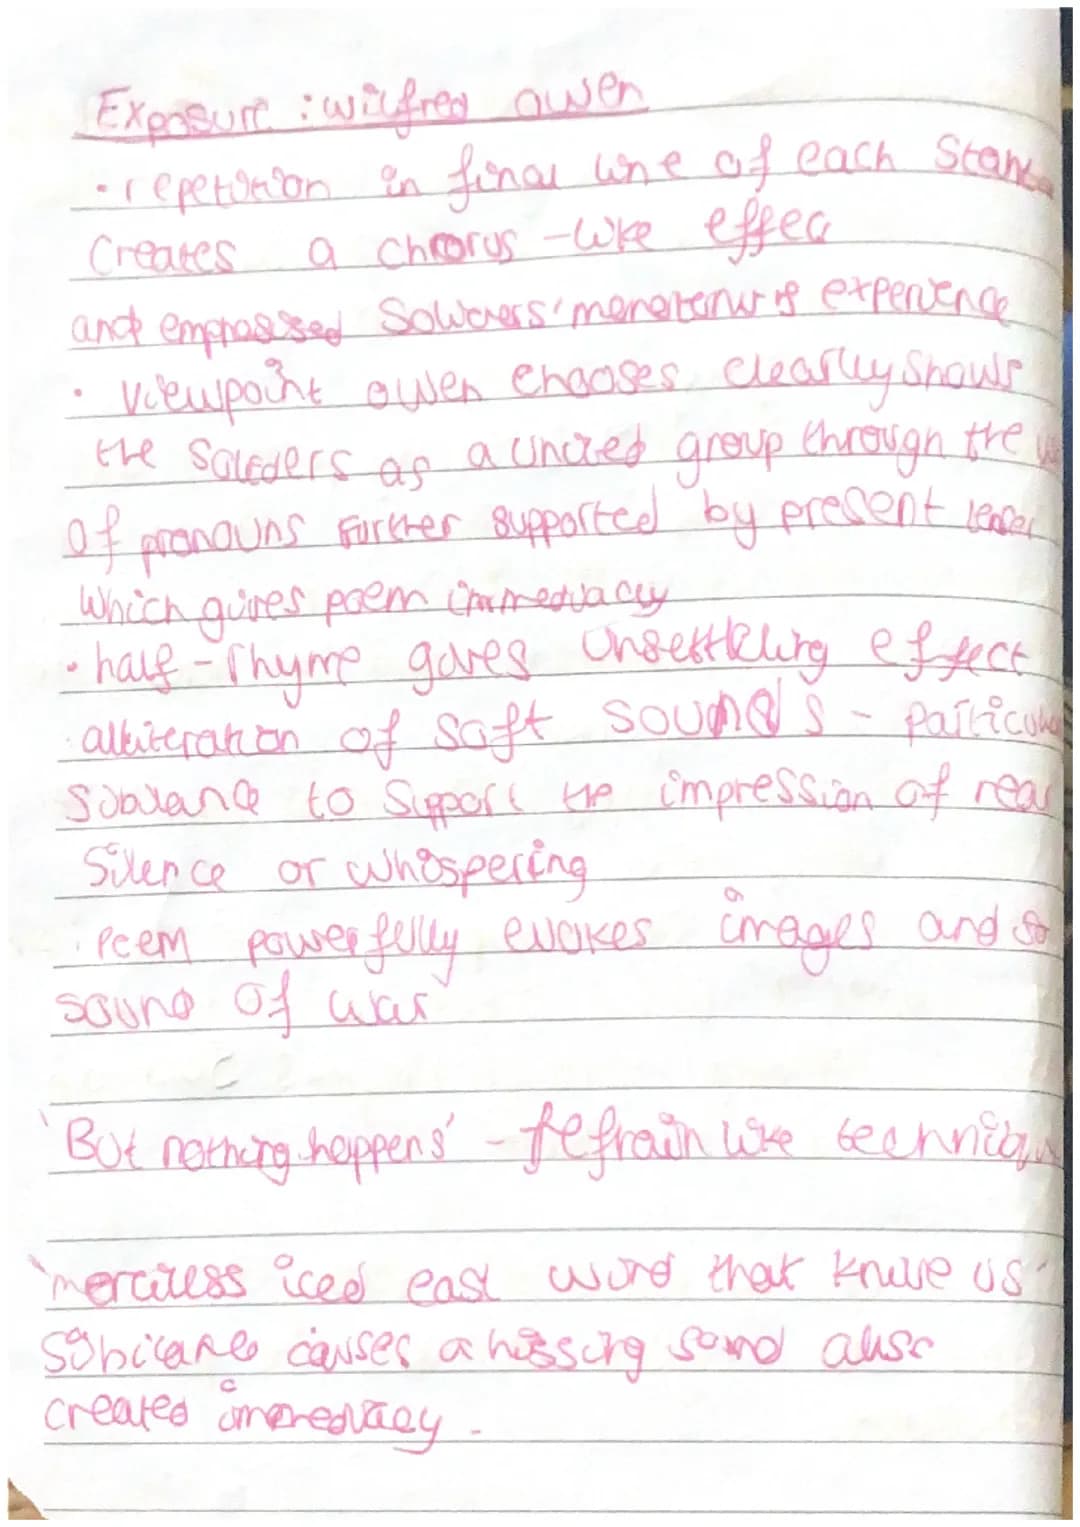 Exposure : wilfred owen
• repetition in final line of each Stanza
Creates a chorus - like effect
and emphasised Soldiers' monotonus experience
• viewpoint owen chooses clearly shows
the soldiers as a united group through the
of pronouns Further supported by present tense
which gives poem immediacy
• half - rhyme gives unsettling effect
• alliteration of soft sounds - particular
sibilance to support the impression of near
silence or whispering
• Poem powerfully evokes images and so
sound of war
'But nothing happens' - refrain like technique
'merciless iced east wind that knive us'
sibilance causes a hissing sound also
created immediacy.